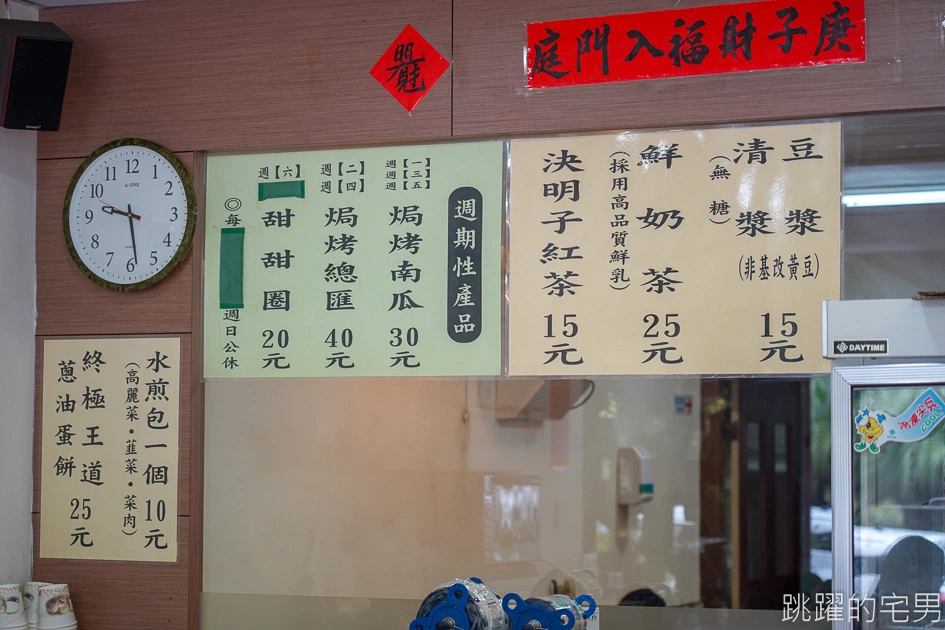 庚子財福入門庭
豆漿
清漿
(無糖)
(非基改黃豆)
15元
鮮奶茶
(採用高品質鮮乳)
25元
決明子紅茶
15元
週期性產品
週【一】
週【三】
週【五】
焗烤南瓜
30元
週【二】
週【四】
焗烤總匯
40元
週【六】
甜甜圈
20元
◎每
週日公休
12
1
2
3
4
5
6
7
8
9
10
11
A-ONE
水煎包一個10元
(高麗菜·韮菜·菜肉)
終極王道
蔥油蛋餅
25元
DAYTIME
冷凍尖兵
COOL
跳躍的宅男